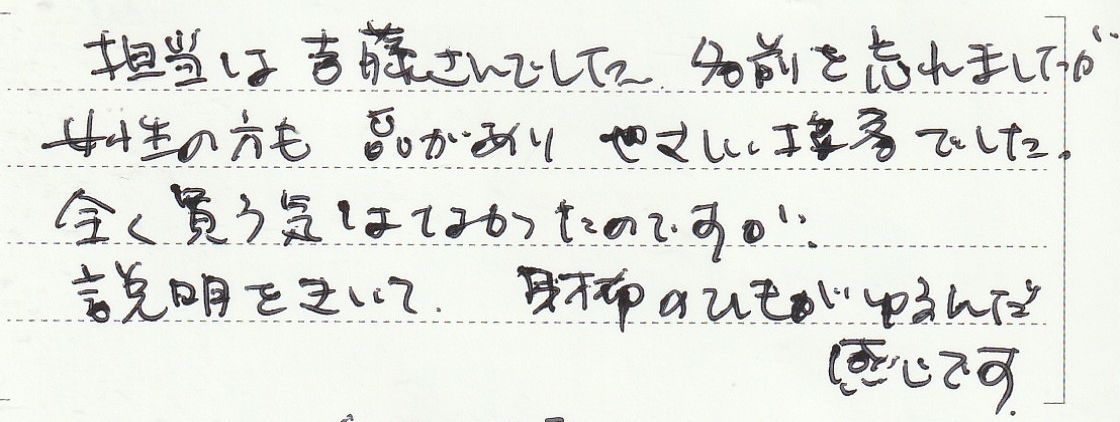 担当は吉藤さんでした 名前を忘れましてが
女性の方も 品があり やさしい接客でした。
全く買う気はてなかったのですが、
説明をきいて、財布のひもがゆるんだ
感じです。